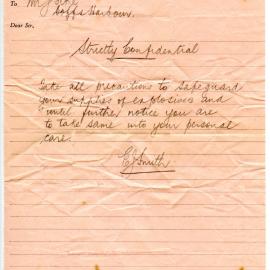 To Mr
Coffs Harbour.
Dear Sir,
Strictly Confidential
Take all precautions to safeguard
your supplies of explosives and
until further notice you are
to take same into your personal
care.
EJ Smith